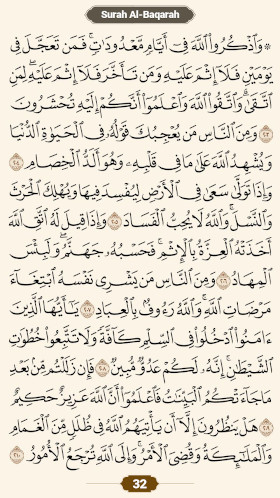 Surah Al-Baqarah
۞ وَٱذْكُرُوا۟ ٱللَّهَ فِىٓ أَيَّامٍ مَّعْدُودَٰتٍ ۚ فَمَن تَعَجَّلَ فِى
يَوْمَيْنِ فَلَآ إِثْمَ عَلَيْهِ وَمَن تَأَخَّرَ فَلَآ إِثْمَ عَلَيْهِ ۚ لِمَنِ
ٱتَّقَىٰ ۗ وَٱتَّقُوا۟ ٱللَّهَ وَٱعْلَمُوٓا۟ أَنَّكُمْ إِلَيْهِ تُحْشَرُونَ
٢٠٣ وَمِنَ ٱلنَّاسِ مَن يُعْجِبُكَ قَوْلُهُۥ فِى ٱلْحَيَوٰةِ ٱلدُّنْيَا
وَيُشْهِدُ ٱللَّهَ عَلَىٰ مَا فِى قَلْبِهِۦ وَهُوَ أَلَدُّ ٱلْخِصَامِ ٢٠٤
وَإِذَا تَوَلَّىٰ سَعَىٰ فِى ٱلْأَرْضِ لِيُفْسِدَ فِيهَا وَيُهْلِكَ ٱلْحَرْثَ
وَٱلنَّسْلَ ۗ وَٱللَّهُ لَا يُحِبُّ ٱلْفَسَادَ ٢٠٥ وَإِذَا قِيلَ لَهُ ٱتَّقِ ٱللَّهَ
أَخَذَتْهُ ٱلْعِزَّةُ بِٱلْإِثْمِ ۚ فَحَسْبُهُۥ جَهَنَّمُ ۚ وَلَبِئْسَ
ٱلْمِهَادُ ٢٠٦ وَمِنَ ٱلنَّاسِ مَن يَشْرِى نَفْسَهُ ٱبْتِغَآءَ
مَرْضَاتِ ٱللَّهِ ۗ وَٱللَّهُ رَءُوفٌۢ بِٱلْعِبَادِ ٢٠٧ يَٰٓأَيُّهَا ٱلَّذِينَ
ءَامَنُوا۟ ٱدْخُلُوا۟ فِى ٱلسِّلْمِ كَآفَّةً وَلَا تَتَّبِعُوا۟ خُطُوَٰتِ
ٱلشَّيْطَٰنِ ۚ إِنَّهُۥ لَكُمْ عَدُوٌّ مُّبِينٌ ٢٠٨ فَإِن زَلَلْتُم مِّنۢ بَعْدِ
مَا جَآءَتْكُمُ ٱلْبَيِّنَٰتُ فَٱعْلَمُوٓا۟ أَنَّ ٱللَّهَ عَزِيزٌ حَكِيمٌ
٢٠٩ هَلْ يَنظُرُونَ إِلَّآ أَن يَأْتِيَهُمُ ٱللَّهُ فِى ظُلَلٍ مِّنَ ٱلْغَمَامِ
وَٱلْمَلَٰٓئِكَةُ وَقُضِىَ ٱلْأَمْرُ ۚ وَإِلَى ٱللَّهِ تُرْجَعُ ٱلْأُمُورُ ٢١٠
32